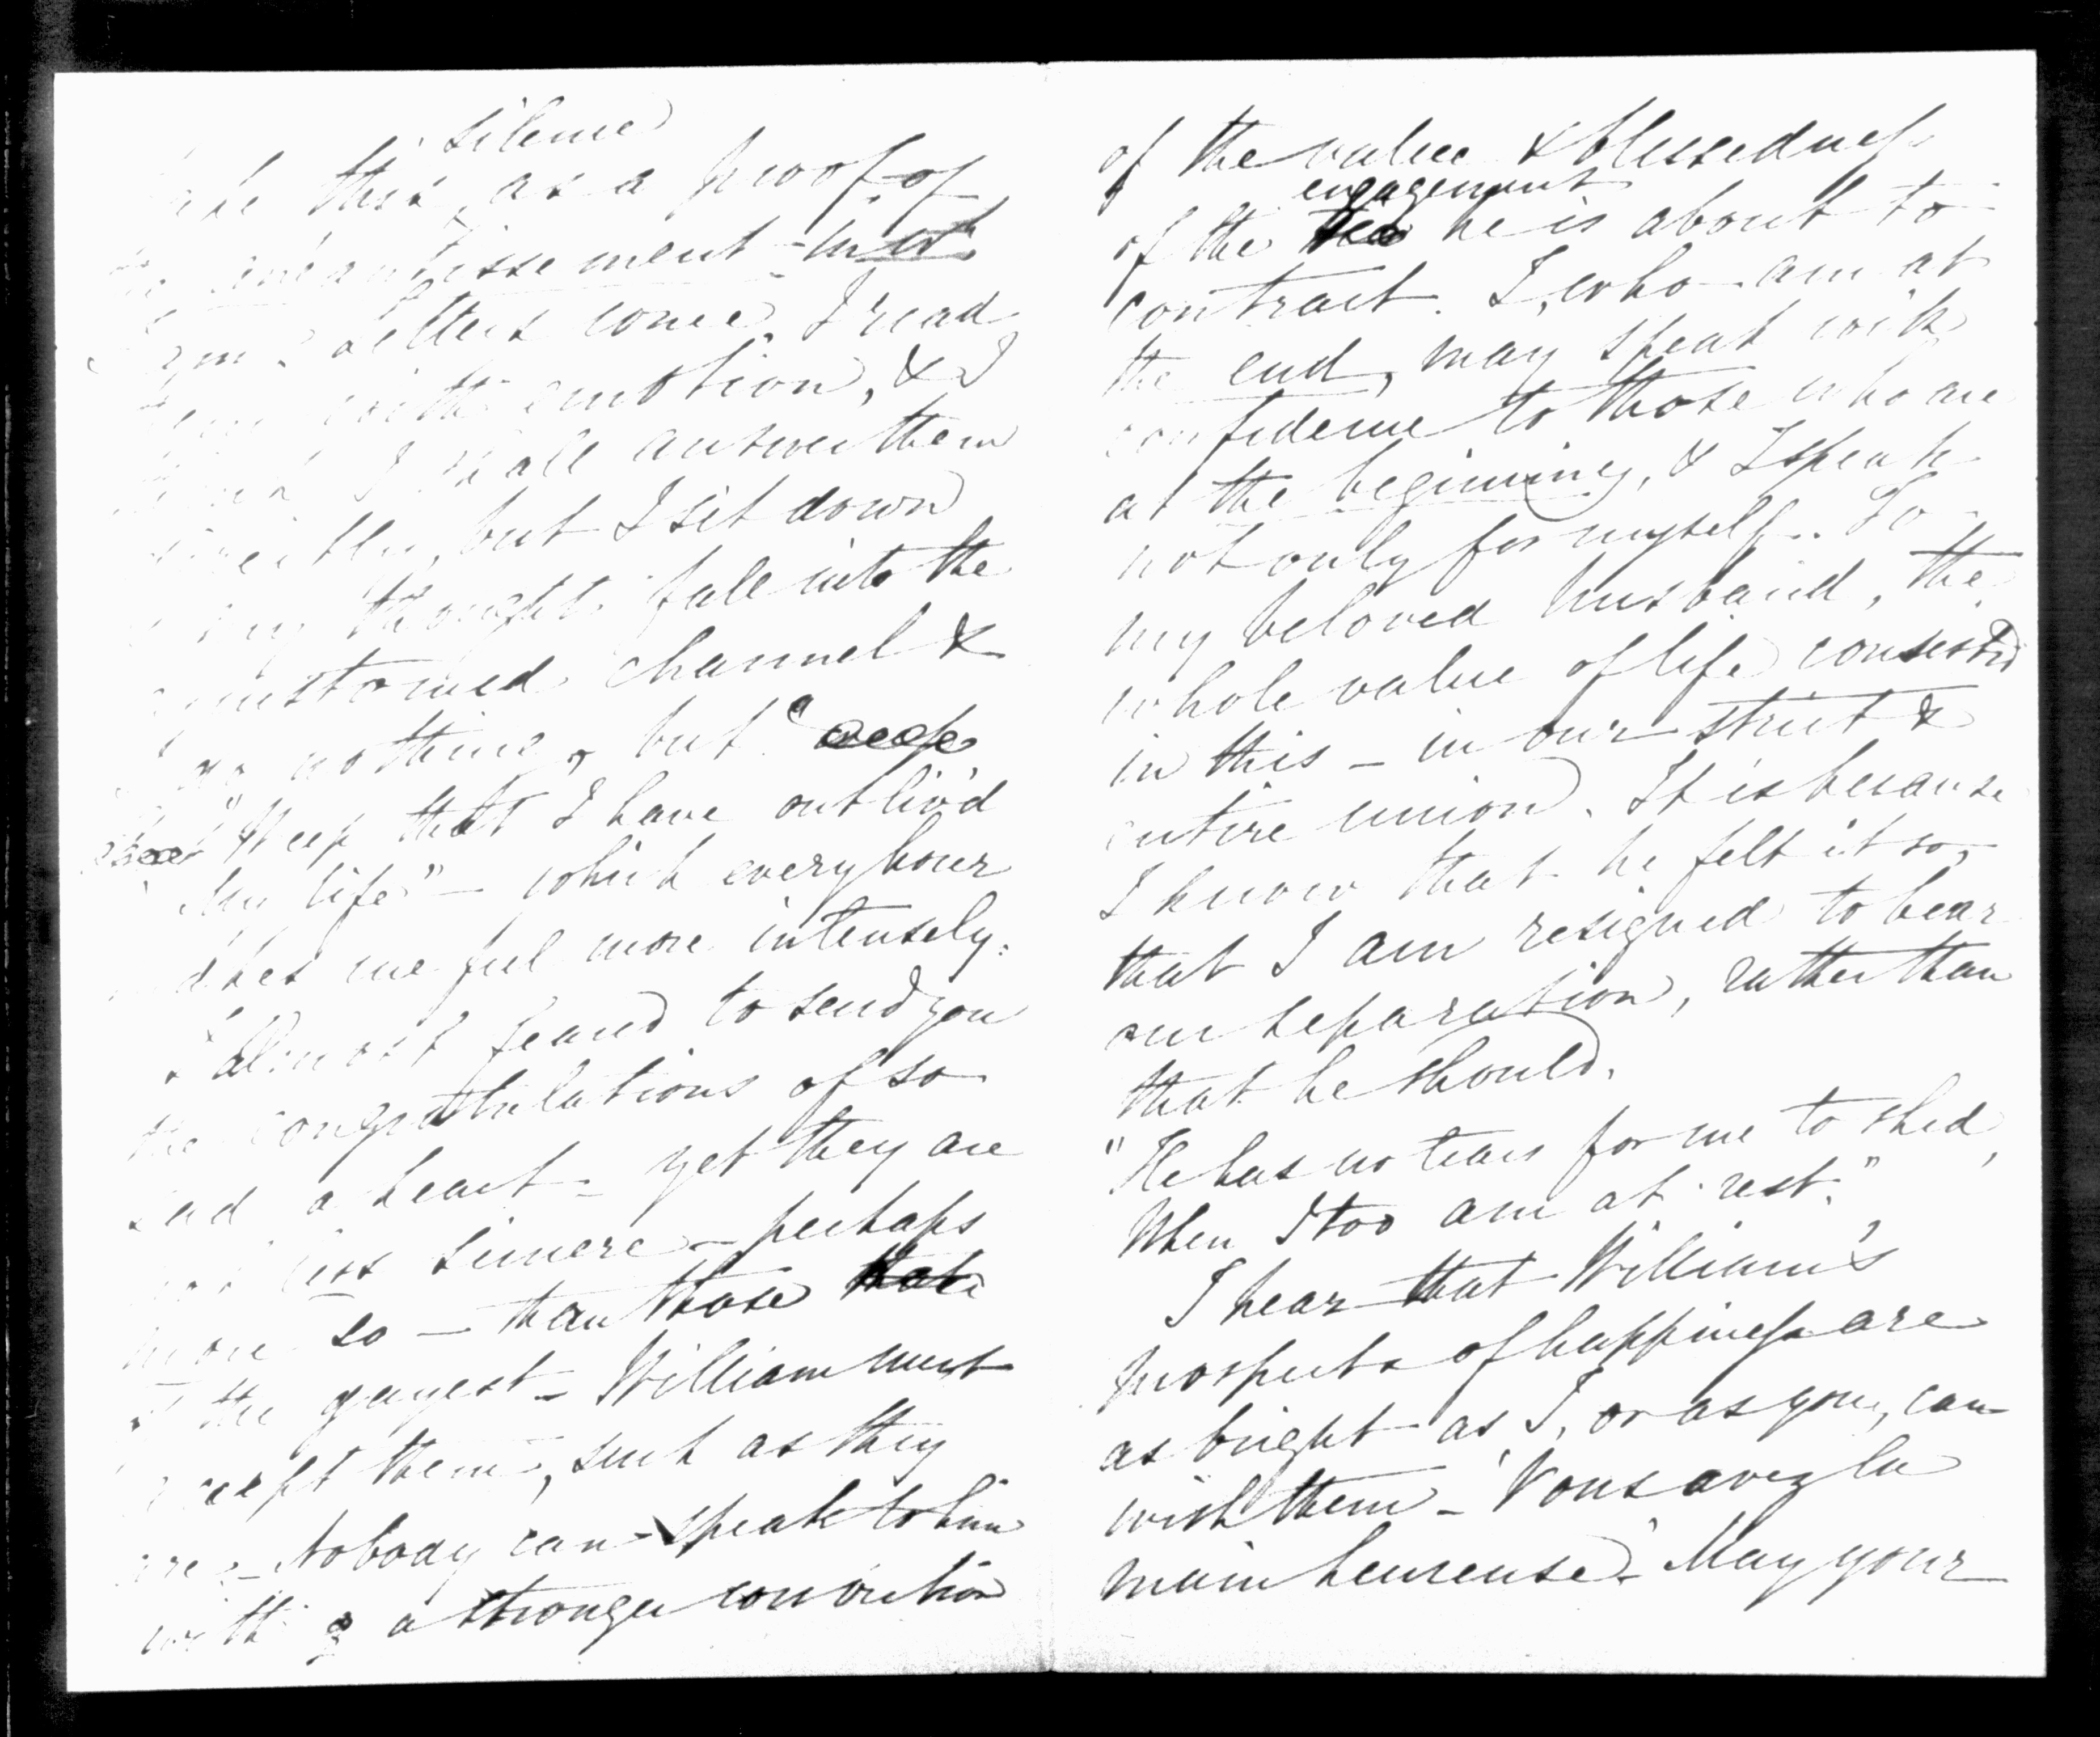 silence
take this, as a proof of
anéantissement - not
Letters come. I read
them with emotion, & I
think I shall answer them
directly, but I sit down
& my thoughts fall into the
accustomed channel &
nothing, but
"Weep that I have outliv'd
life" - which every hour
makes me feel more intensely.
I almost feared to send you
the congratulations of so
sad a heart - yet they are
not less sincere - perhaps
more so - than those that
of the gayest - William must
accept them, such as they
are - Nobody can speak to him
with a stronger conviction
of the value & blessedness
engagement
of the he is about to
contract. I, who am at
the end, may speak with
confidence to those who are
at the beginning, & I speak
not only for myself. To
my beloved husband, the
whole value of life consisted
in this - in our strict &
entire union. It is because
I know that he felt it so,
that I am resigned to bear
our separation, rather than
that he should.
"He has no tears for me to shed,
When I too am at rest."
I hear that William's
prospects of happiness are
as bright as I, or as you, can
wish them - "Vous avez la
main heureuse." May your